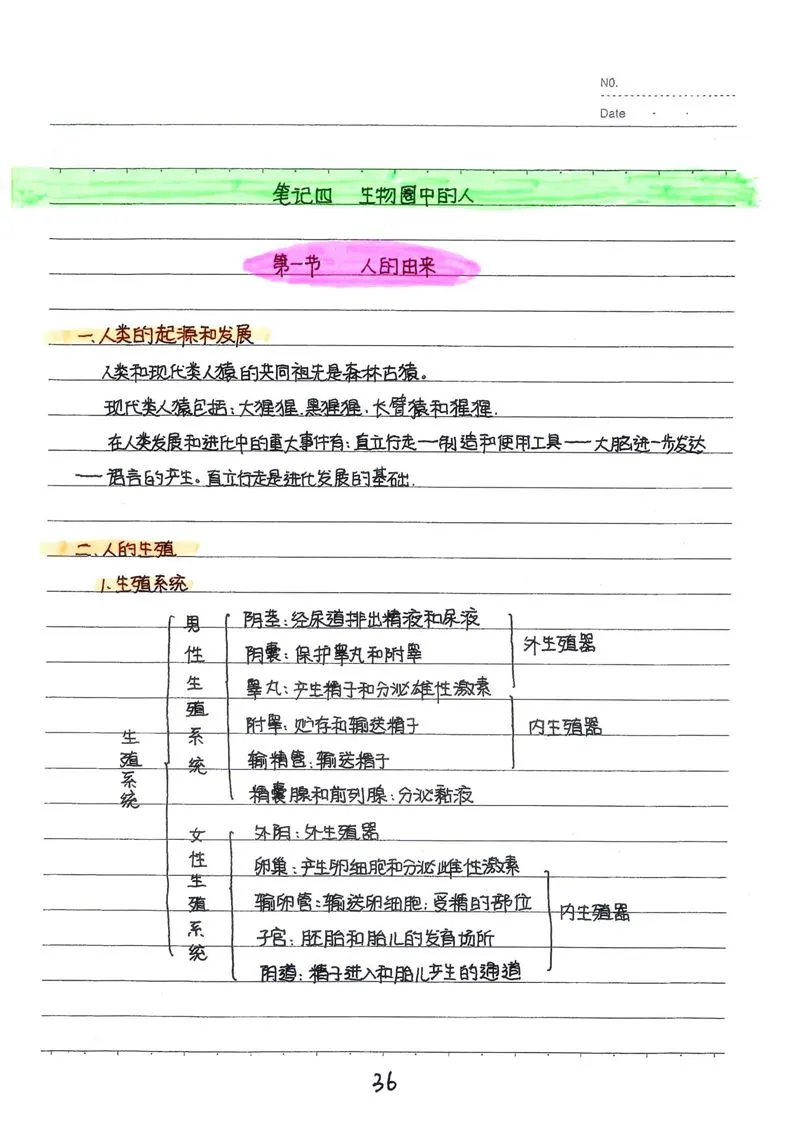 NO.
Date
笔记四 生物圈中的人
第一节 人的由来
一、人类的起源和发展
人类和现代类人猿的共同祖先是森林古猿。
现代类人猿包括:大猩猩、黑猩猩、长臂猿和猩猩.
在人类发展和进化中的重大事件有:直立行走——制造和使用工具——大脑进一步发达
——语言的产生。直立行走是进化发展的基础.
二、人的生殖
1.生殖系统
生殖系统
男性生殖系统
阴茎:经尿道排出精液和尿液
阴囊:保护睾丸和附睾
外生殖器
睾丸:产生精子和分泌雄性激素
附睾:贮存和输送精子
输精管:输送精子
内生殖器
精囊腺和前列腺:分泌黏液
女性生殖系统
外阴:外生殖器
卵巢:产生卵细胞和分泌雌性激素
输卵管:输送卵细胞;受精的部位
子宫:胚胎和胎儿的发育场所
阴道:精子进入和胎儿产生的通道
内生殖器
36